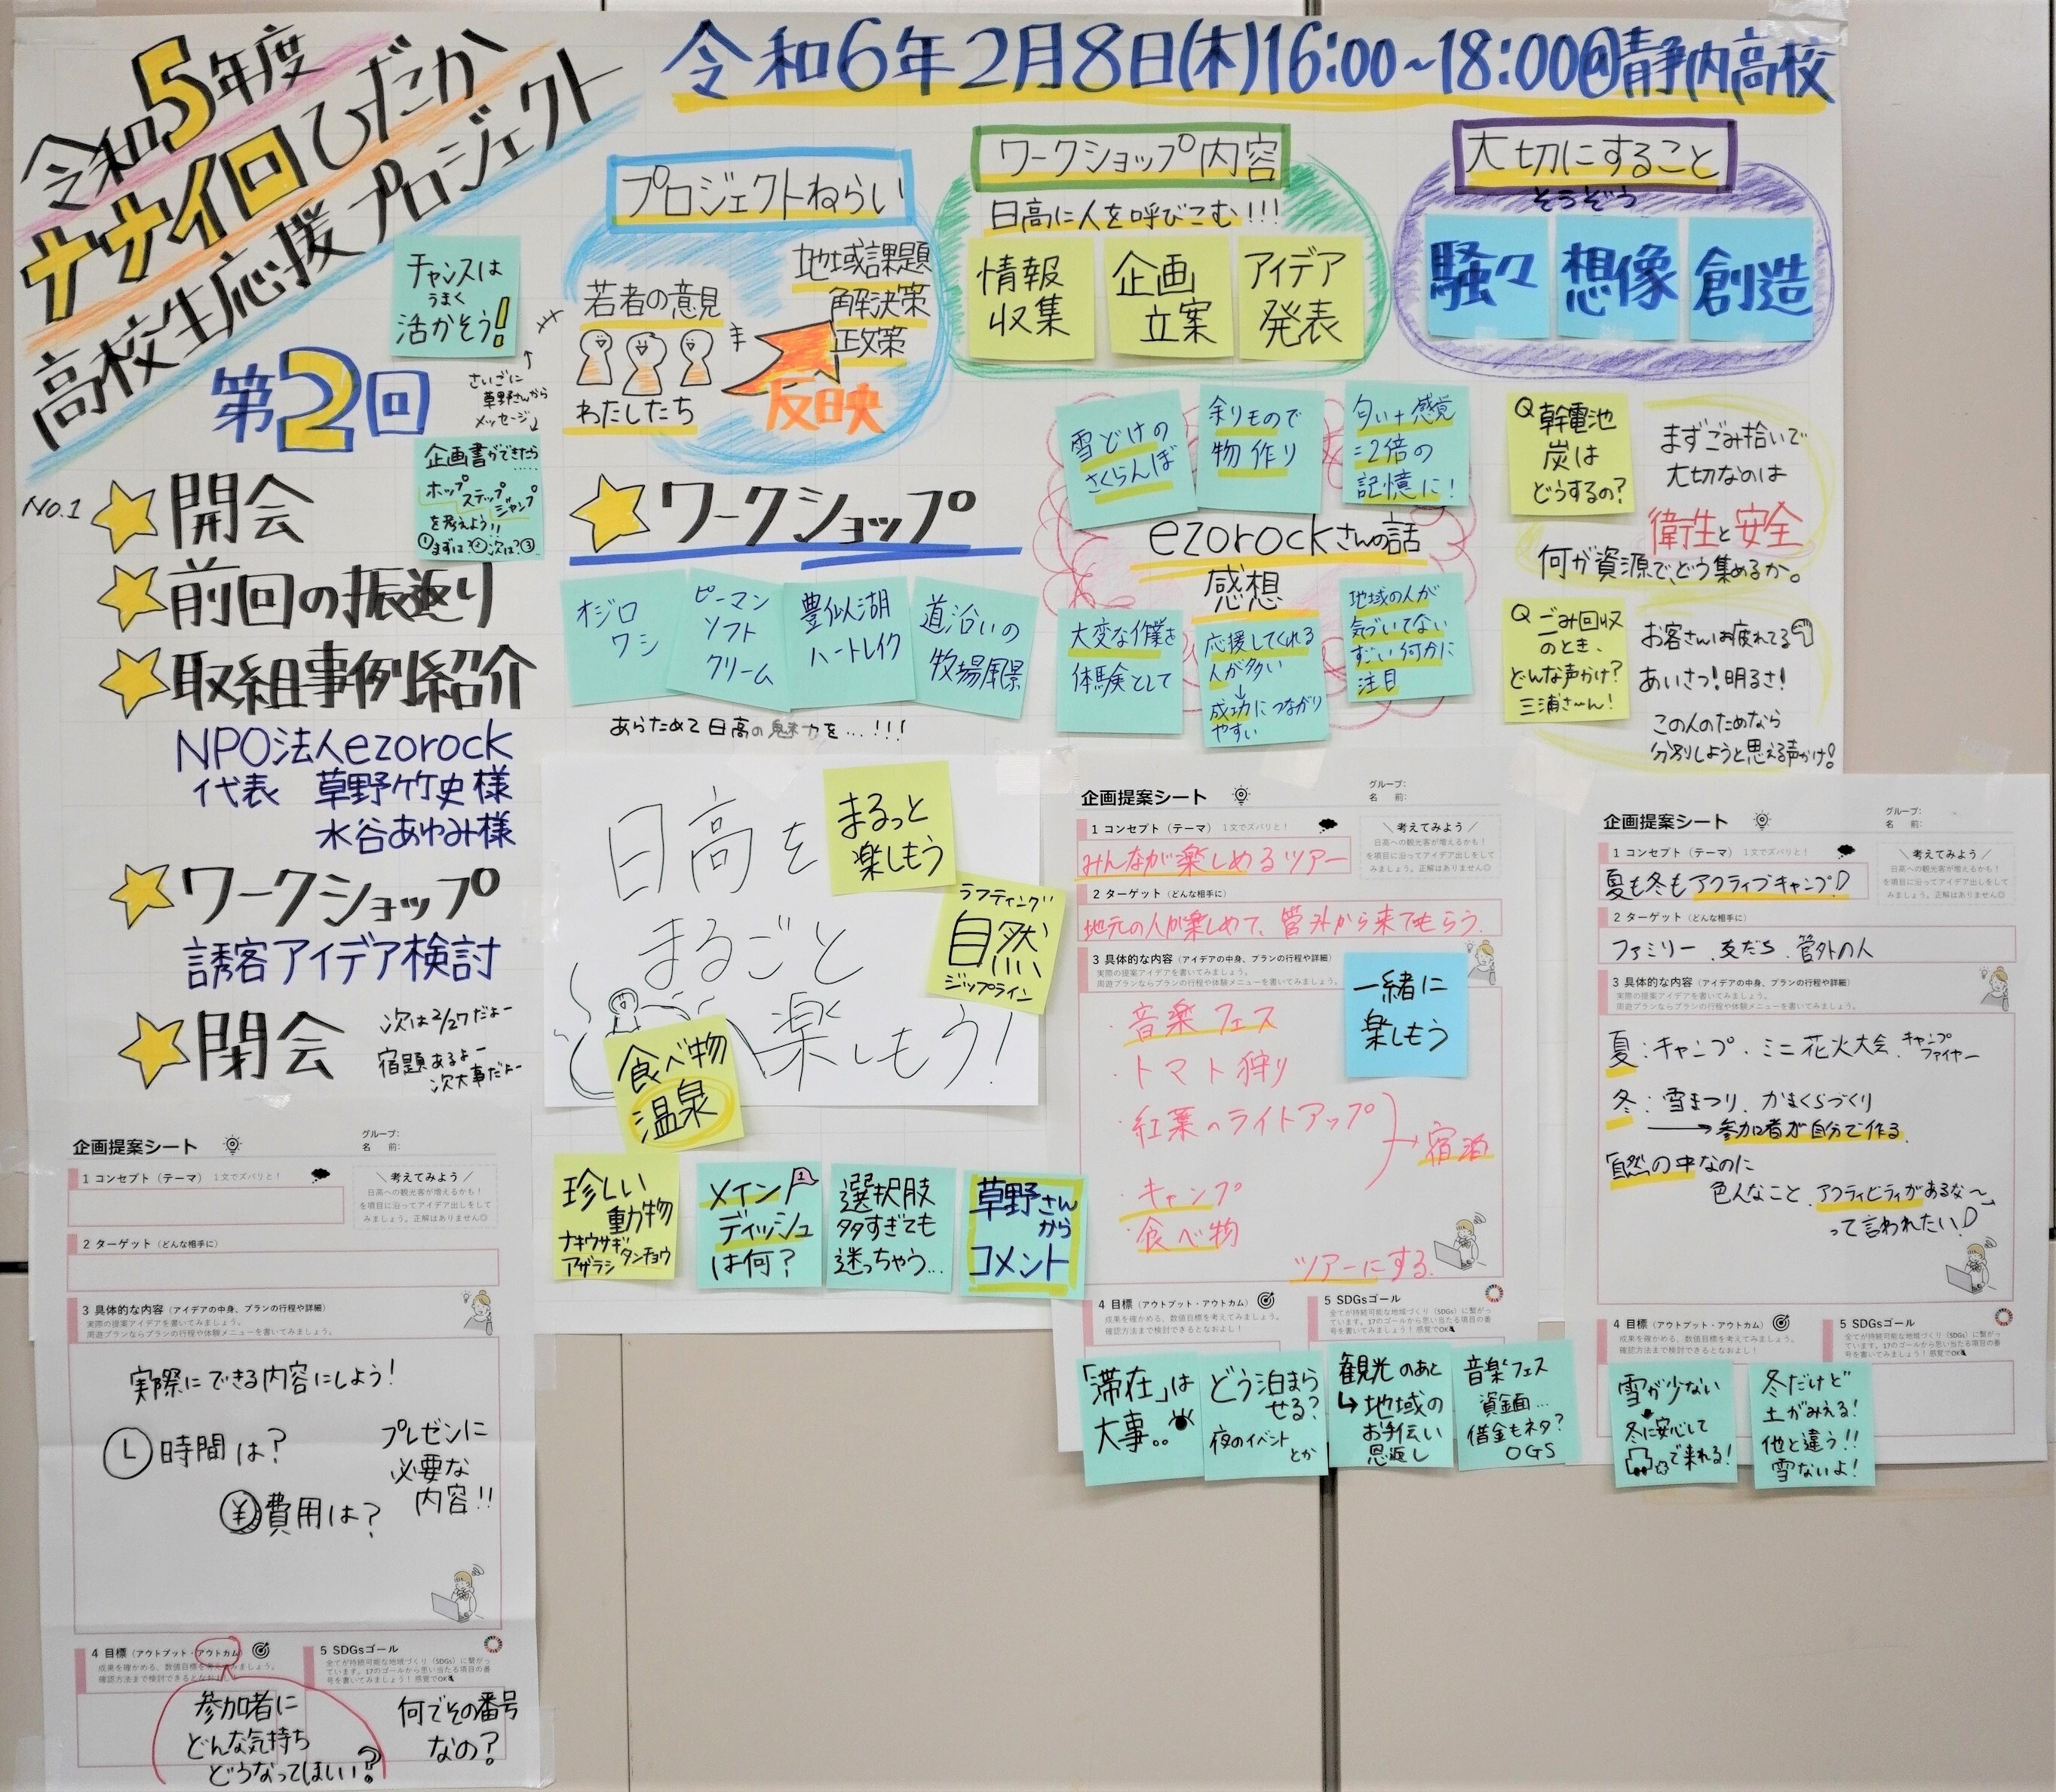 令和5年度
ナナイロひだか
高校生応援プロジェクト
第2回
令和6年2月8日(木)16:00~18:00@静内高校
チャンスは
うまく
活かそう!
さいごに
草野さんから
メッセージ
企画書ができたら
ホップ
ステップ
ジャンプ
を考えよう!!
①まずは?②次は?③
No.1
開会
前回の振返り
取組事例紹介
NPO法人ezorock
代表 草野竹史様
水谷あゆみ様
ワークショップ
誘客アイデア検討
閉会
次は2/27だよー
宿題あるよー
次大事だよー
プロジェクトねらい
若者の意見
わたしたち
地域課題
解決策
政策
反映
ワークショップ内容
日高に人を呼びこむ!!!
情報
収集
企画
立案
アイデア
発表
大切にすること
そうぞう
騒々
想像
創造
ワークショップ
オジロ
ワシ
ピーマン
ソフト
クリーム
豊似湖
ハートレイク
道沿いの
牧場風景
あらためて日高の魅力を…!!!
雪どけの
さくらんぼ
余りもので
物作り
匂い+感覚
=2倍の
記憶に!
ezorockさんの話
感想
大変な作業を
体験として
応援してくれる
人が多い
↓
成功につながり
やすい
地域の人が
気づいてない
すごい何かに
注目
Q 幹電池
炭は
どうするの?
まずごみ拾いで
大切なのは
衛生と安全
何が資源で、どう集めるか。
Q ごみ回収
のとき、
どんな声かけ?
三浦さーん!
お客さんは疲れてる
あいさつ!明るさ!
この人のためなら
分別しようと思える声かけ!
日高を
まるごと
楽しもう!
まるっと
楽しもう
ラフティング
自然
ジップライン
食べ物
温泉
珍しい
動物
ナキウサギ
タンチョウ
アザラシ
メイン
1
ディッシュ
は何?
選択肢
多すぎても
迷っちゃう…
草野さん
から
コメント
企画提案シート
グループ:
名 前:
1 コンセプト(テーマ) 1文でズバリと!
みんなが楽しめるツアー
\ 考えてみよう /
日高への観光客が増えるかも!
を項目に沿ってアイデア出しをして
みましょう。正解はありません◎
2 ターゲット(どんな相手に)
地元の人が楽しめて、管外から来てもらう
3 具体的な内容(アイデアの中身、プランの行程や詳細)
実際の提案アイデアを書いてみましょう。
周遊プランならプランの行程や体験メニューを書いてみましょう。
一緒に
楽しもう
・音楽フェス
・トマト狩り
・紅葉のライトアップ
→宿泊
・キャンプ
・食べ物
ツアーにする
4 目標(アウトプット・アウトカム)
成果を確かめる、数値目標を考えてみましょう。
確認方法まで検討できるとなおよし!
5 SDGsゴール
全てが持続可能な地域づくり(SDGs)に繋がっ
ています。17のゴールから思い当たる項目の番
号を書いてみましょう!感覚でOK
「滞在」は
大事。。
どう泊まら
せる?
夜のイベント
とか
観光のあと
↳地域の
お手伝い
恩返し
音楽フェス
資金面…
借金もネタ?
OGS
企画提案シート
グループ:
名 前:
1 コンセプト(テーマ) 1文でズバリと!
夏も冬もアクティブキャンプ♪
\ 考えてみよう /
日高への観光客が増えるかも!
を項目に沿ってアイデア出しをして
みましょう。正解はありません◎
2 ターゲット(どんな相手に)
ファミリー、友だち、管外の人
3 具体的な内容(アイデアの中身、プランの行程や詳細)
実際の提案アイデアを書いてみましょう。
周遊プランならプランの行程や体験メニューを書いてみましょう。
夏:キャンプ・ミニ花火大会・キャンプ
ファイヤー
冬:雪まつり、かまくらづくり
→参加者が自分で作る
自然の中なのに
色んなこと、アクティビティがあるな〜
って言われたい♪
4 目標(アウトプット・アウトカム)
成果を確かめる、数値目標を考えてみましょう。
確認方法まで検討できるとなおよし!
5 SDGsゴール
全てが持続可能な地域づくり(SDGs)に繋がっ
ています。17のゴールから思い当たる項目の番
号を書いてみましょう!感覚でOK
雪が少ない
冬に安心して
で来れる!
冬だけど
土がみえる!
他と違う!!
雪ないよ!
企画提案シート
グループ:
名 前:
1 コンセプト(テーマ) 1文でズバリと!
\ 考えてみよう /
日高への観光客が増えるかも!
を項目に沿ってアイデア出しをして
みましょう。正解はありません◎
2 ターゲット(どんな相手に)
3 具体的な内容(アイデアの中身、プランの行程や詳細)
実際の提案アイデアを書いてみましょう。
周遊プランならプランの行程や体験メニューを書いてみましょう。
実際にできる内容にしよう!
時間は?
¥費用は?
プレゼンに
必要な
内容!!
4 目標(アウトプット・アウトカム)
成果を確かめる、数値目標を考えてみましょう。
確認方法まで検討できるとなおよし!
5 SDGsゴール
全てが持続可能な地域づくり(SDGs)に繋がっ
ています。17のゴールから思い当たる項目の番
号を書いてみましょう!感覚でOK
参加者に
どんな気持ち
どうなってほしい?
何でその番号
なの?